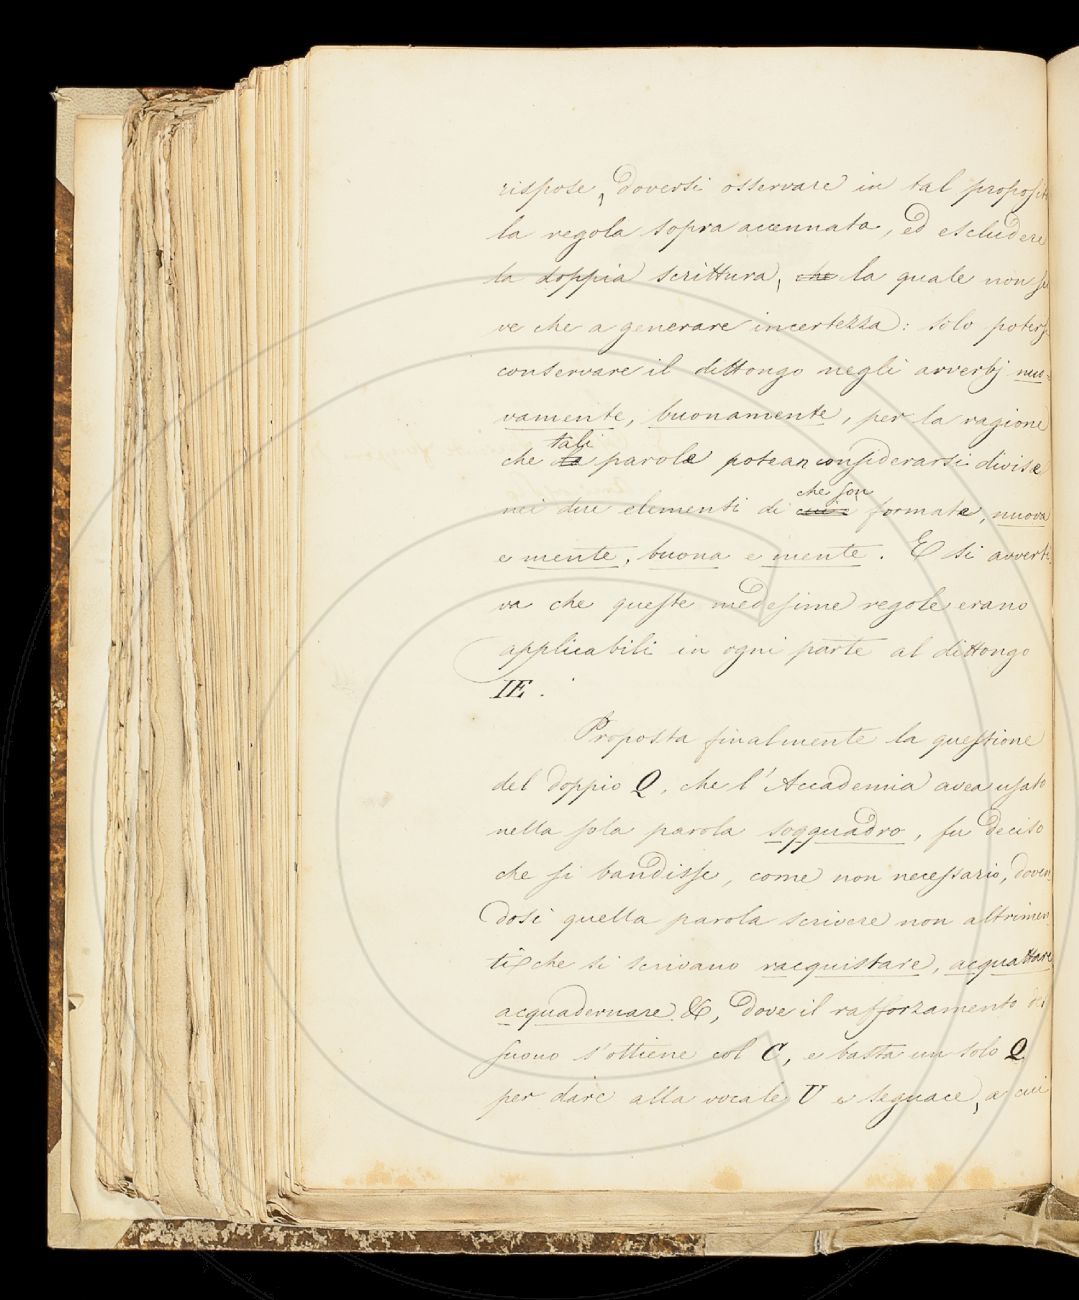 rispose, doversi osservare in tal proposito
la regola sopra accennata, ed escludere
la doppia scrittura, che la quale non ser
ve che a generare incertezza: solo potersi
conservare il dittongo negli avverbj nuo-
vamente, buonamente, per la ragione
che tali parole potean considerarsi divise
nei due elementi di che son formate, nuova
e mente, buona e mente. E si avverti
va che queste medesime regole erano
applicabili in ogni parte al dittongo
IE.
Proposta finalmente la questione
del doppio Q, che l'Accademia avea usato
nella sola parola soqquadro, fu deciso
che si bandisse, come non necessario, doven
dosi quella parola scrivere non altrimen
ti che si scrivano racquistare, acquattare
acquadernare &, dove il rafforzamento del
suono s'ottiene col C, e basta un solo Q
per dare alla vocale U e seguace, a cui